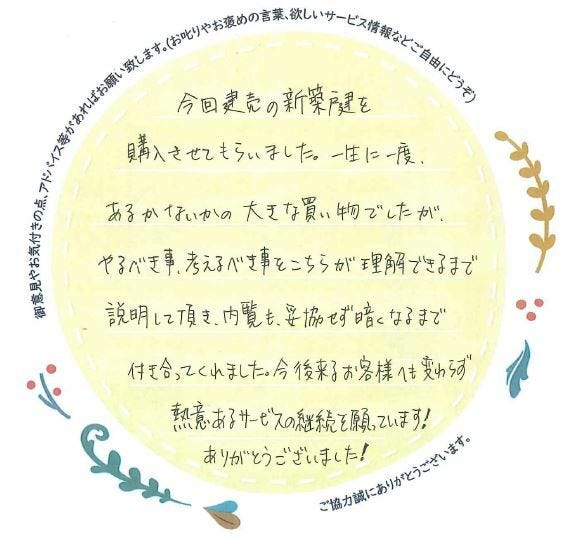 御意見やお気付きの点、アドバイス等があればお願い致します。(お叱りやお褒めの言葉、欲しいサービス情報などご自由にどうぞ)
今回建売の新築戸建を
購入させてもらいました。一生に一度、
あるかないかの大きな買い物でしたが、
やるべき事、考えるべき事をこちらが理解できるまで
説明して頂き、内覧も、妥協せず暗くなるまで
付き合ってくれました。今後来るお客様へも変わらず
熱意あるサービスの継続を願っています!
ありがとうございました!
ご協力誠にありがとうございます。